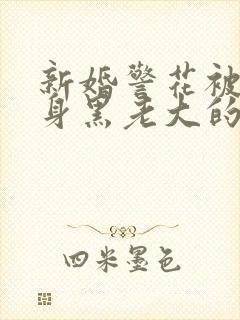 新婚警花被
身黑老大的
四米墨色